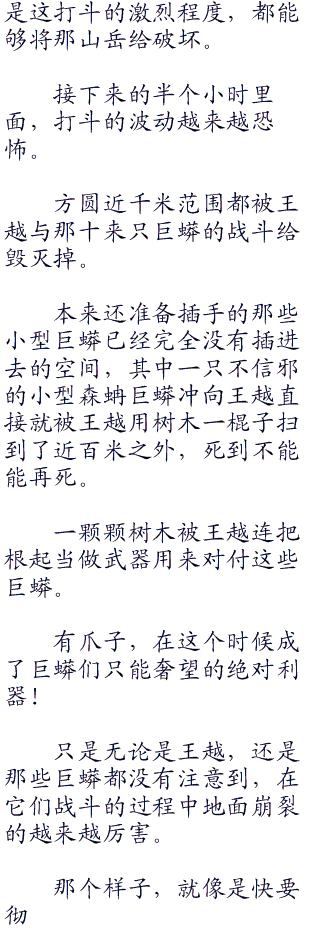 是这打斗的激烈程度，都能
够将那山岳给破坏。
接下来的半个小时里
面，打斗的波动越来越恐
怖。
方圆近千米范围都被王
越与那十来只巨蟒的战斗给
毁灭掉。
本来还准备插手的那些
小型巨蟒已经完全没有插进
去的空间，其中一只不信邪
的小型森蚺巨蟒冲向王越直
接就被王越用树木一棍子扫
到了近百米之外，死到不能
能再死。
一颗颗树木被王越连把
根起当做武器用来对付这些
巨蟒。
有爪子，在这个时候成
了巨蟒们只能奢望的绝对利
器！
只是无论是王越，还是
那些巨蟒都没有注意到，在
它们战斗的过程中地面崩裂
的越来越厉害。
那个样子，就像是快要
彻